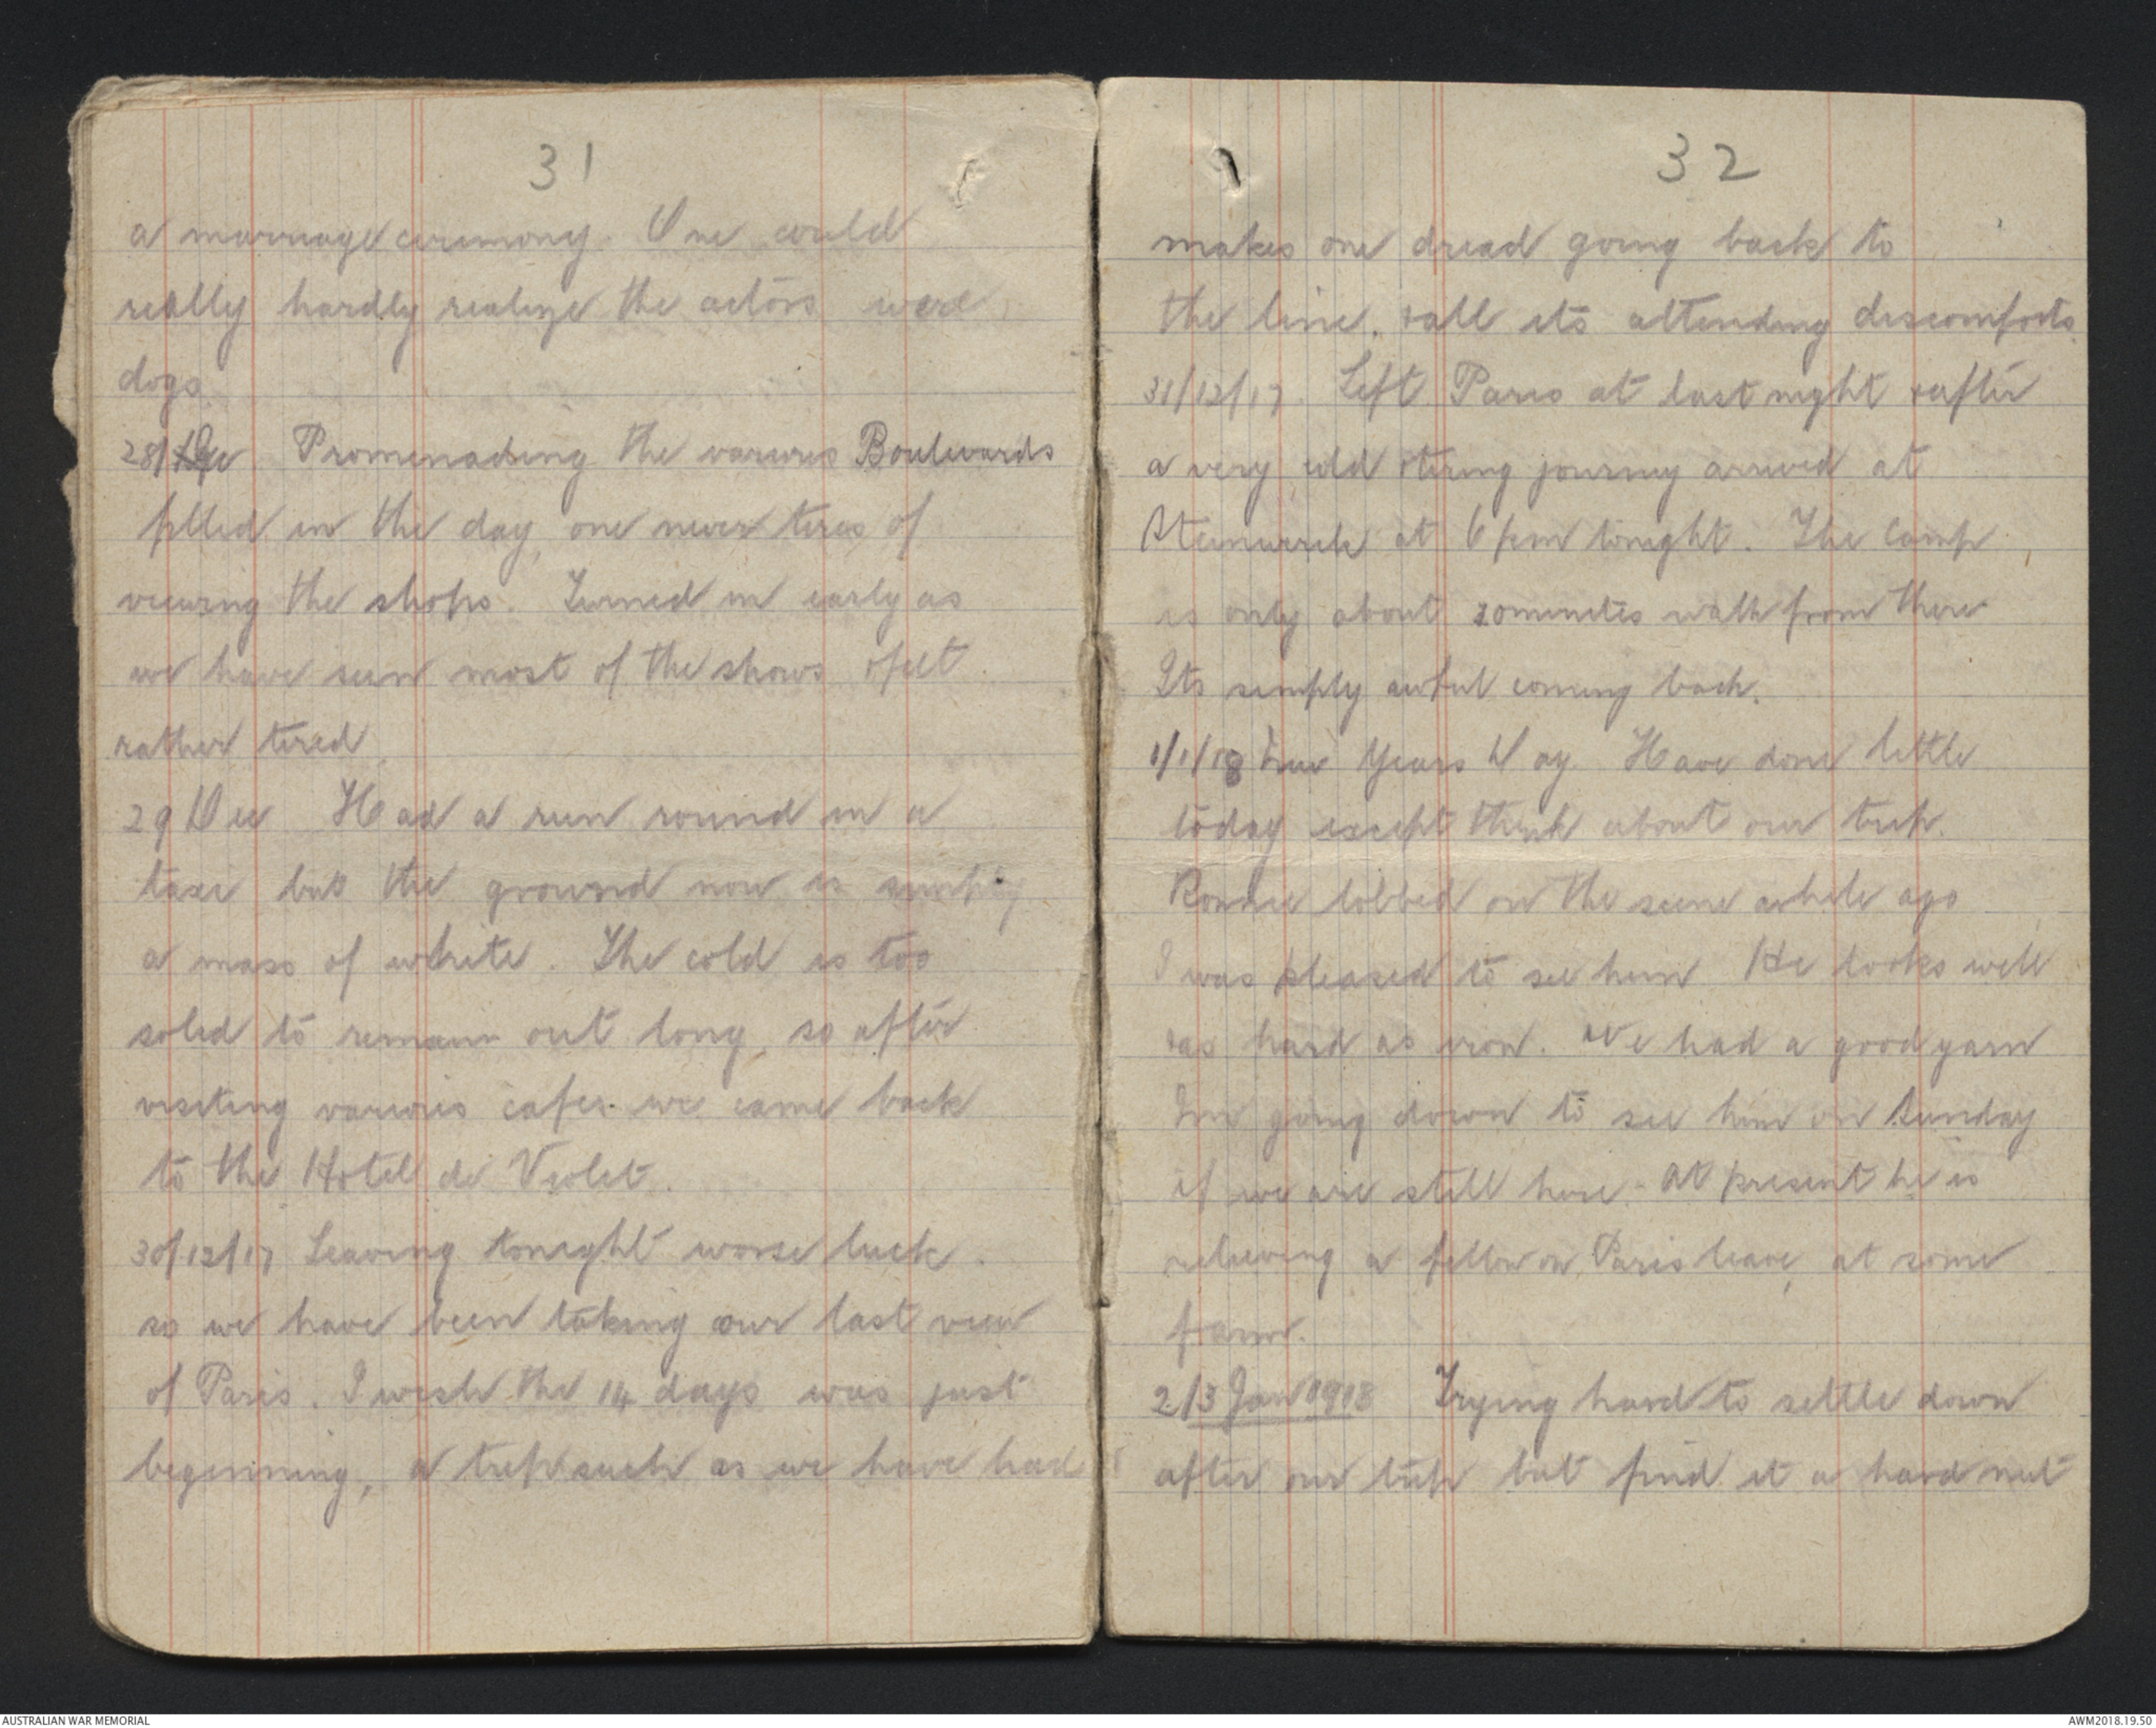 31
a marriage ceremony. One could
really hardly realize the actors were
dogs.
28/Dec Promenading the various Boulevards
filled in the day, one never tires of
viewing the shops. Turned in early as
we have seen most of the shows & felt
rather tired
29 Dec Had a run round in a
taxi but the ground now is simply
a mass of white. The cold is too
solid to remain out long, so after
visiting various cafes we came back
to the Hotel de Violet.
30/12/17 Leaving tonight worse luck.
so we have been taking our last view
of Paris. I wish the 14 days was just
beginning, a trip such as we have had
32
makes one dread going back to
the line, & all its attending discomforts.
31/12/17. Left Paris at last night & after
a very cold & tiring journey arrived at
Steenwerck at 6 pm tonight. The Camp
is only about 20 minutes walk from there
Its simply awful coming back.
1/1/18 New Years Day Have done little
today except think about our trip.
Ronnie lobbed on the scene awhile ago
I was pleased to see him He looks well
& as hard as iron. We had a good yarn
Im going down to see him on Sunday
if we are still here. At present he is
relieving a fellow on Paris leave, at some
farm.
2/3 Jan 1918 Trying hard to settle down
after our trip but find it a hard nut
AUSTRALIAN WAR MEMORIAL
AWM2018.19.50